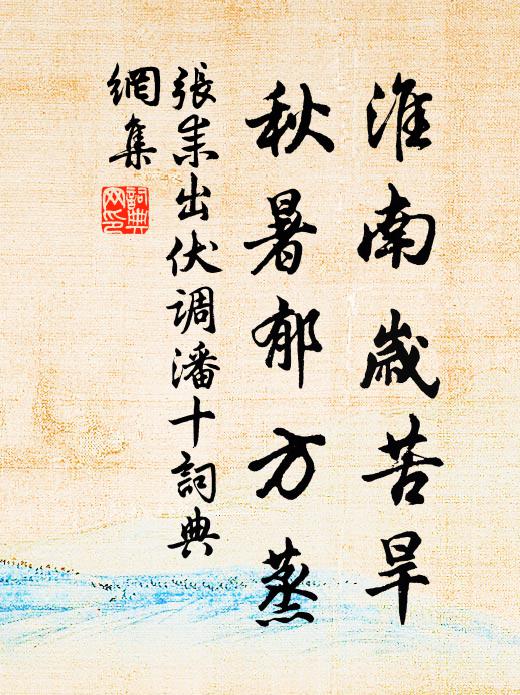 淮南歲苦旱
秋暑郁方蒸
張耒出伏調潘十詞典
網集
詞典
网印